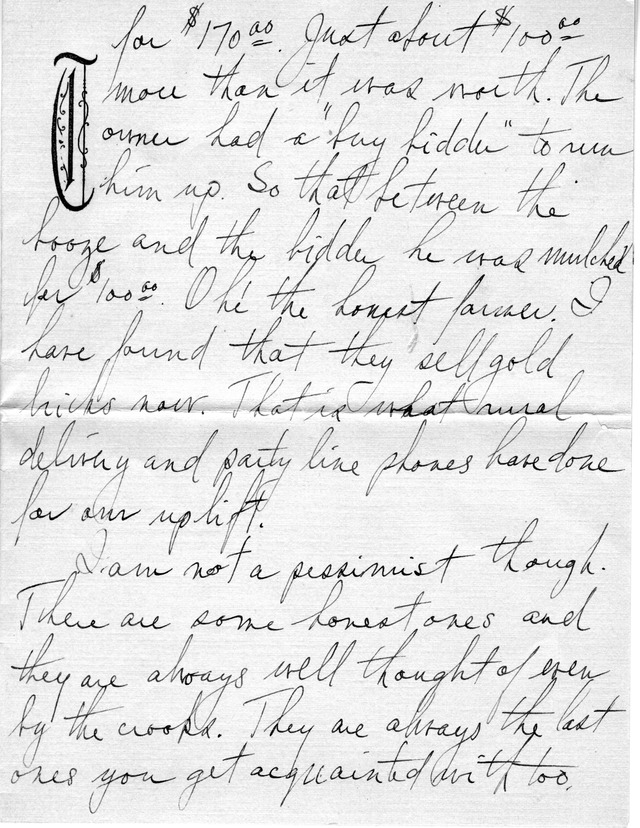 for $170.00. Just about $100.00
more than it was worth. The
owner had a "buy bidder" to run
him up. So that between the
booze and the bidder he was mulched
for $100.00. Oh! the honest farmer. I
have found that they sell gold
bricks now. That is what rural
delivery and party line phones have done
for our uplift.
I am not a pessimist though.
There are some honest ones and
they are always well thought of even
by the crooks. They are always the last
ones you get acquainted with too.